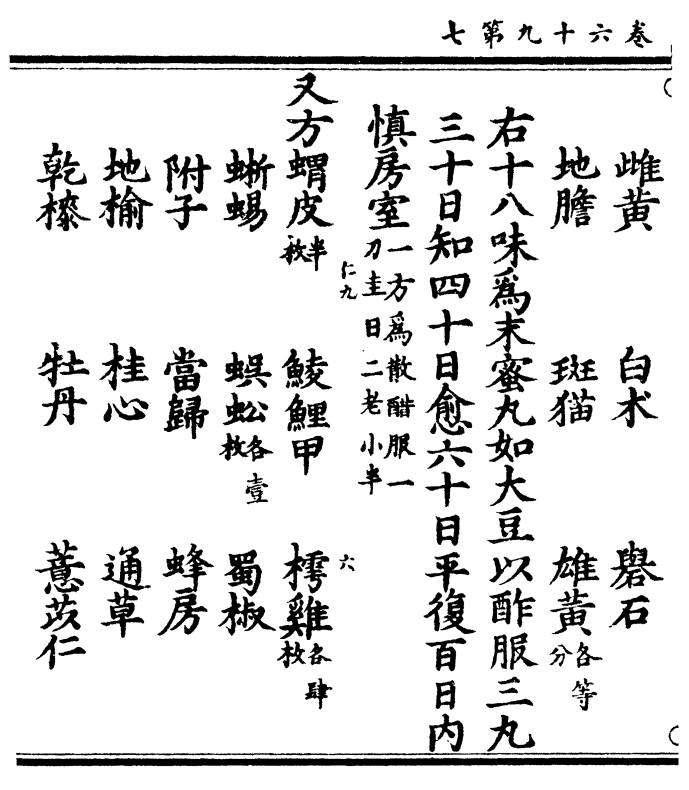 卷六十九第七
雌黃 白朮 礜石
地膽 斑猫 雄黃各等分
右十八味爲末蜜丸如大豆以酢服三丸
三十日知四十日愈六十日平復百日内
慎房室一方爲散醋服一刀圭日二老小半
仁九
又方蝟皮半枚 鯪鯉甲 樗雞各肆枚
六
蜥蜴 蜈蚣各壹枚 蜀椒
附子 當歸 蜂房
地榆 桂心 通草
乾漆 牡丹 薏苡仁